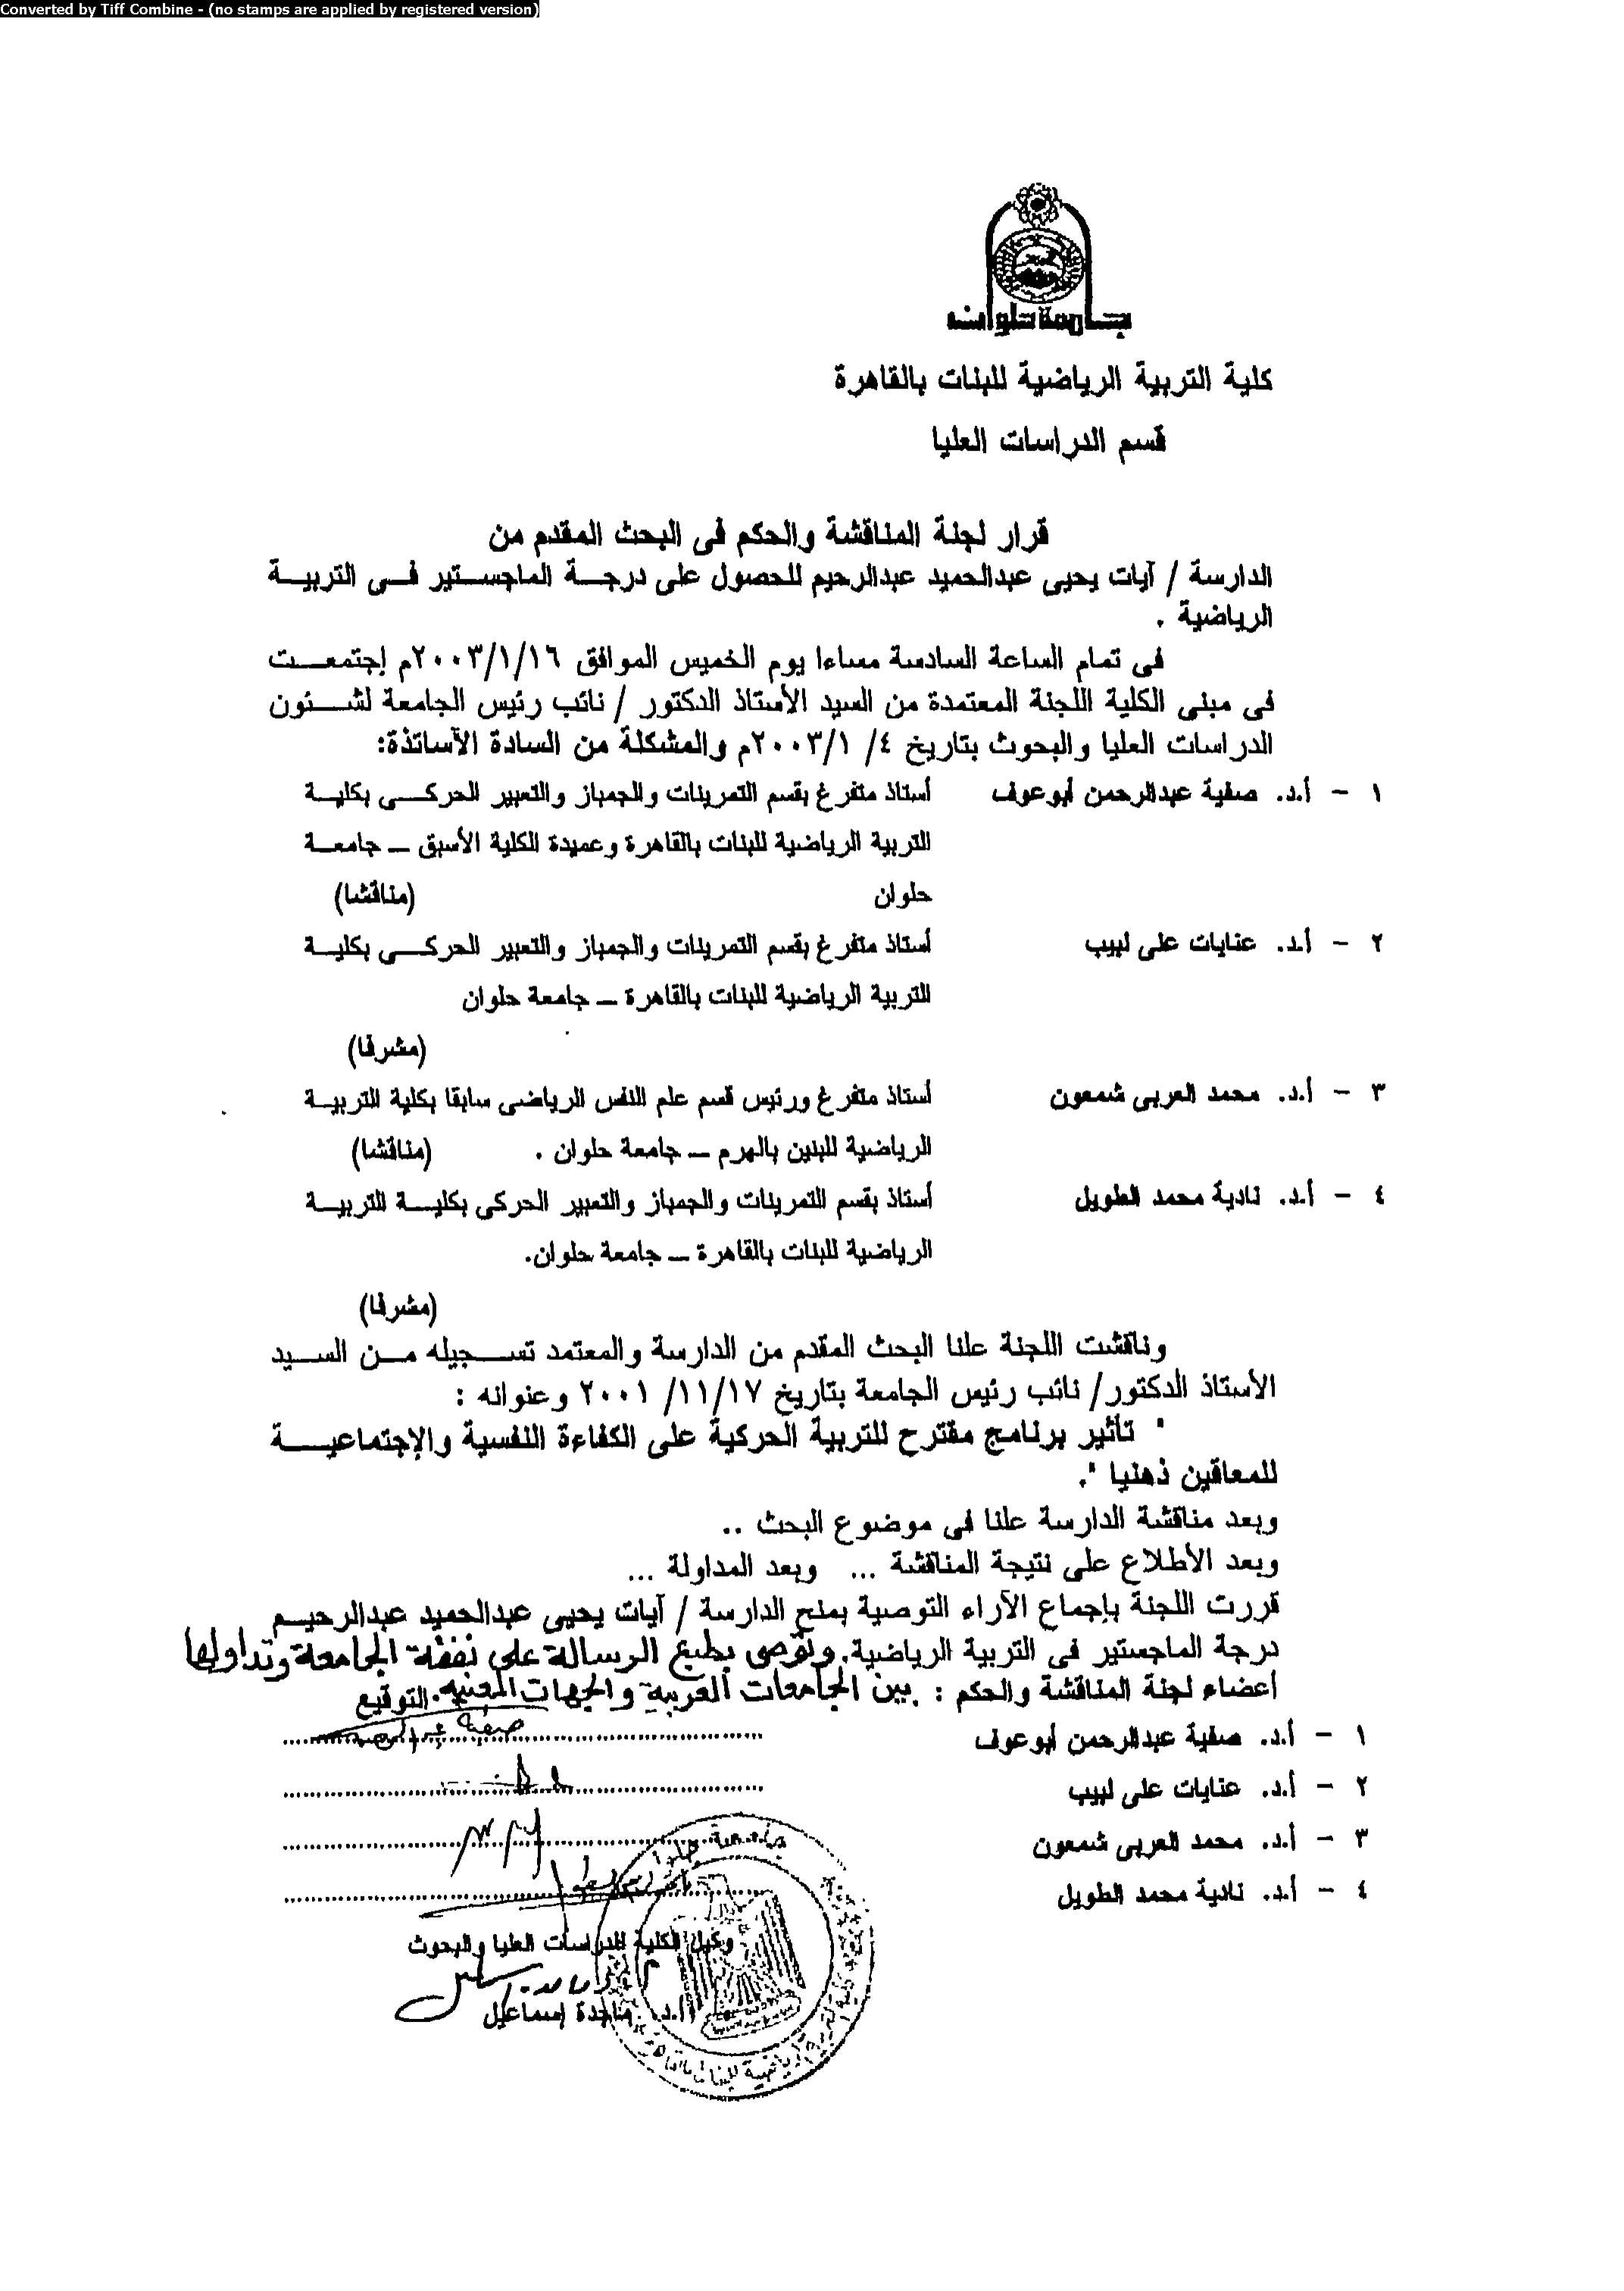 Converted by Tiff Combine - (no stamps are applied by registered version)
جامعة حلوان
كلية التربية الرياضية للبنات بالقاهرة
قسم الدراسات العليا
قرار لجنة المناقشة والحكم فى البحث المقدم من
الدارسة / آيات يحيى عبدالحميد عبدالرحيم للحصول على درجة الماجستير فى التربية
الرياضية .
فى تمام الساعة السادسة مساءا يوم الخميس الموافق ٢٠٠٣/١/١٦م إجتمعت
فى مبنى الكلية اللجنة المعتمدة من السيد الأستاذ الدكتور / نائب رئيس الجامعة لشئون
الدراسات العليا والبحوث بتاريخ ٤/ ٢٠٠٣/١م والمشكلة من السادة الآساتذة:
١ - أ.د. صفية عبدالرحمن أبوعوف أستاذ متفرغ بقسم التمرينات والجمباز والتعبير الحركى بكلية
التربية الرياضية للبنات بالقاهرة وعميدة الكلية الأسبق – جامعة
حلوان (مناقشا)
٢ - أ.د. عنايات على لبيب أستاذ متفرغ بقسم التمرينات والجمباز والتعبير الحركى بكلية
التربية الرياضية للبنات بالقاهرة – جامعة حلوان
(مشرفا)
٣ - أ.د. محمد العربى شمعون أستاذ متفرغ ورئيس قسم علم النفس الرياضى سابقا بكلية التربية
الرياضية للبنين بالهرم – جامعة حلوان . (مناقشا)
٤ - أ.د. نادية محمد الطويل أستاذ بقسم التمرينات والجمباز والتعبير الحركى بكلية التربية
الرياضية للبنات بالقاهرة – جامعة حلوان.
(مشرفا)
وناقشت اللجنة علنا البحث المقدم من الدارسة والمعتمد تسجيله من السيد
الأستاذ الدكتور/ نائب رئيس الجامعة بتاريخ ١١/١٧/ ٢٠٠١ وعنوانه :
" تأثير برنامج مقترح للتربية الحركية على الكفاءة النفسية والإجتماعية
للمعاقين ذهنيا ".
وبعد مناقشة الدارسة علنا فى موضوع البحث ..
وبعد الأطلاع على نتيجة المناقشة ... وبعد المداولة ...
قررت اللجنة بإجماع الآراء التوصية بمنح الدارسة / آيات يحيى عبدالحميد عبدالرحيم
درجة الماجستير فى التربية الرياضية. ونوصى بطبع الرسالة على نفقة الجامعة وتداولها
أعضاء لجنة المناقشة والحكم : بين الجامعات العربية والجهات المعنية. التوقيع
١ - أ.د. صفية عبدالرحمن أبوعوف
٢ - أ.د. عنايات على لبيب
٣ - أ.د. محمد العربى شمعون
٤ - أ.د. نادية محمد الطويل
وكيل الكلية للدراسات العليا والبحوث
أ.د. ماجدة إسماعيل